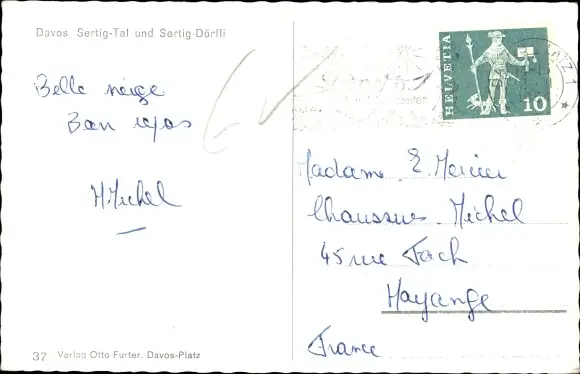 Davos Sertig-Tal und Sertig-Dörfli
Belle neige
Bon repos
M Michel
HELVETIA
10
Madame E. Mercier
Chaussures Michel
45 rue Foch
Hayange
France
37 Verlag Otto Furter, Davos-Platz